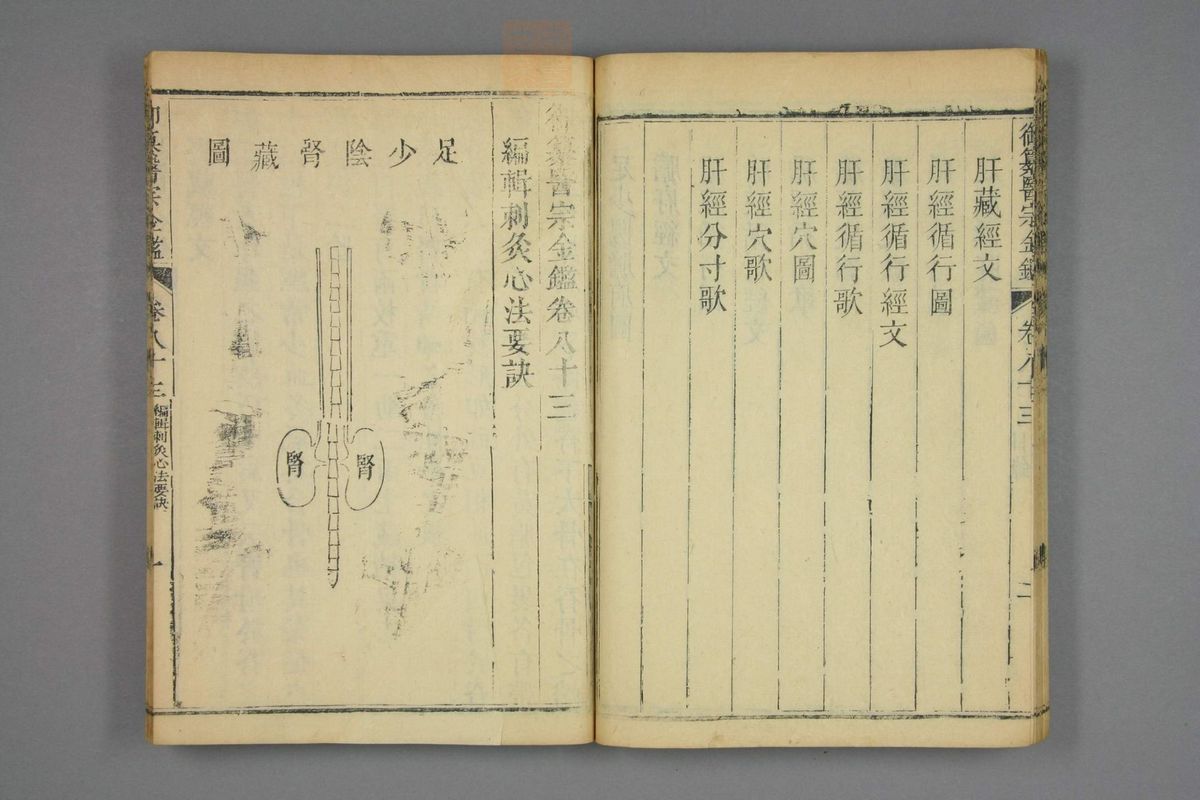 御纂醫宗金鑑
卷八十三
二
肝藏經文
肝經循行圖
肝經循行經文
肝經循行歌
肝經穴圖
肝經穴歌
肝經分寸歌
御纂醫宗金鑑卷八十三
編輯刺灸心法要訣
足少陰腎藏圖
腎
腎
御纂醫宗金鑑
卷八十三
編輯刺灸心法要訣
一